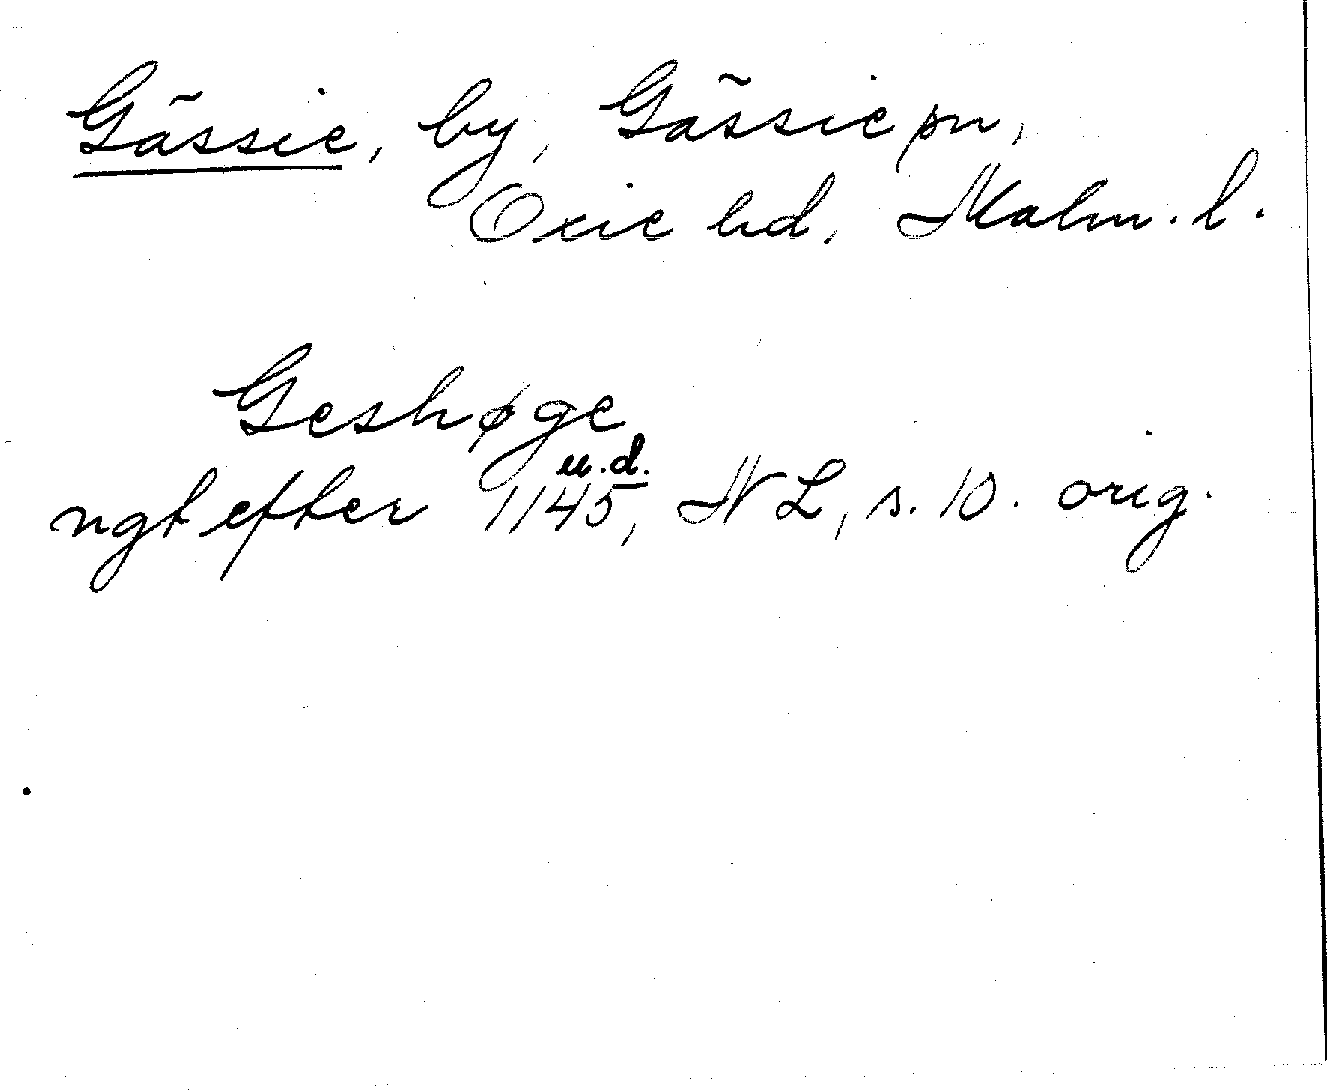 Gässie, by, Gässie pn,
Oxie hd, Malm. l.
Geshøge
u.d.
ngt efter 1145, NL, s. 10. orig.